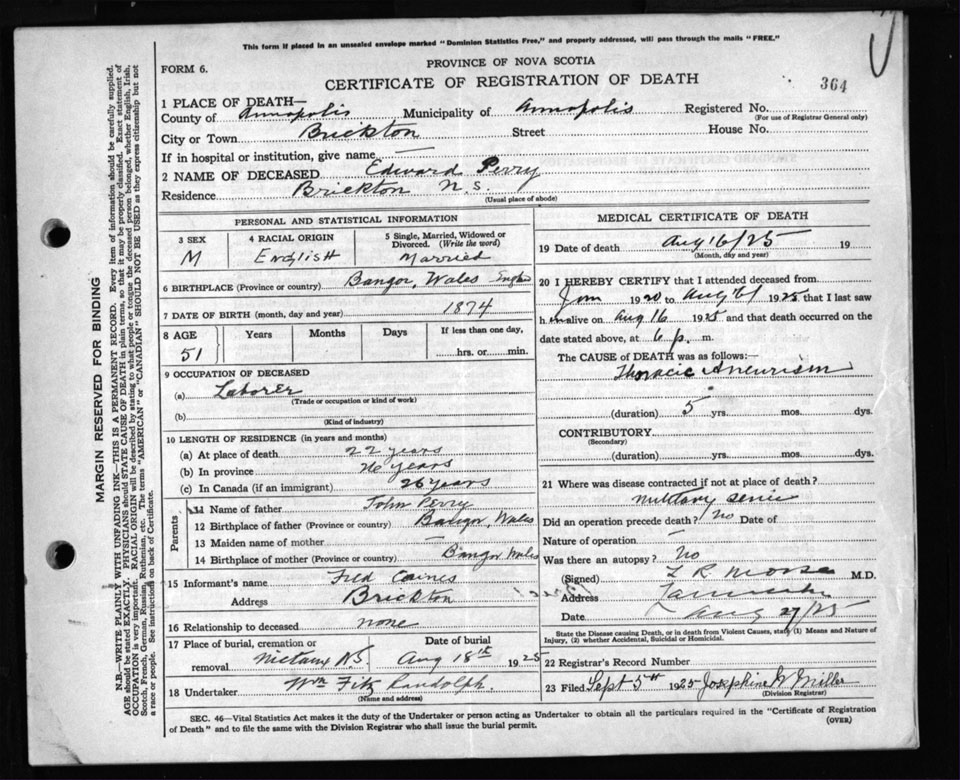 This form if placed in an unsealed envelope marked "Dominion Statistics Free," and properly addressed, will pass through the mails "FREE."
PROVINCE OF NOVA SCOTIA
FORM 6.
CERTIFICATE OF REGISTRATION OF DEATH
364
1 PLACE OF DEATH—
County of Annapolis Municipality of Annapolis Registered No.
(For use of Registrar General only)
City or Town Brickton Street House No.
If in hospital or institution, give name —
2 NAME OF DECEASED Edward Perry
Residence Brickton N.S.
(Usual place of abode)
PERSONAL AND STATISTICAL INFORMATION
3 SEX 4 RACIAL ORIGIN 5 Single, Married, Widowed or Divorced. (Write the word)
M English Married
6 BIRTHPLACE (Province or country) Bangor, Wales
7 DATE OF BIRTH (month, day and year) 1874
8 AGE Years Months Days If less than one day,
51 hrs. or min.
9 OCCUPATION OF DECEASED
(a) Laborer
(Trade or occupation or kind of work)
(b)
(Kind of industry)
10 LENGTH OF RESIDENCE (in years and months)
(a) At place of death 22 years
(b) In province 26 years
(c) In Canada (if an immigrant) 26 years
Parents
11 Name of father John Perry
12 Birthplace of father (Province or country) Bangor, Wales
13 Maiden name of mother —
14 Birthplace of mother (Province or country) Bangor Wales
15 Informant's name Fred Caines
Address Brickton
16 Relationship to deceased none
17 Place of burial, cremation or Date of burial
removal Nictaux N.S. Aug 18th 1925
18 Undertaker Wm Fitz Randolph.
(Name and address)
MEDICAL CERTIFICATE OF DEATH
19 Date of death Aug 16/25 19
(Month, day and year)
20 I HEREBY CERTIFY that I attended deceased from
1920 to Aug 16 1925 that I last saw
h im alive on Aug 16 1925 and that death occurred on the
date stated above, at 6 p. m.
The CAUSE of DEATH was as follows:—
Thoracic Aneurism
(duration) 5 yrs. mos. dys.
CONTRIBUTORY
(Secondary)
(duration) yrs. mos. dys.
21 Where was disease contracted if not at place of death?
Military Service
Did an operation precede death? No Date of —
Nature of operation —
Was there an autopsy? No
(Signed) L R Morse M.D.
Address
Date Aug 27/25
State the Disease causing Death, or in death from Violent Causes, state (1) Means and Nature of
Injury, (2) whether Accidental, Suicidal or Homicidal.
22 Registrar's Record Number
23 Filed Sept 5th 1925 Josephine W Miller
(Division Registrar)
SEC. 46—Vital Statistics Act makes it the duty of the Undertaker or person acting as Undertaker to obtain all the particulars required in the "Certificate of Registration
of Death" and to file the same with the Division Registrar who shall issue the burial permit.
(OVER)
MARGIN RESERVED FOR BINDING
N.B.—WRITE PLAINLY WITH UNFADING INK—THIS IS A PERMANENT RECORD. Every item of information should be carefully supplied.
AGE should be stated EXACTLY. PHYSICIANS should STATE CAUSE OF DEATH in plain terms, so that it may be properly classified. Exact statement of
OCCUPATION is very important. RACIAL ORIGIN will be described by stating to what people or tongue the deceased person belonged, whether English, Irish,
Scotch, French, German, Russian, Ruthenian, etc. The terms "AMERICAN" or "CANADIAN" SHOULD NOT BE USED as they express citizenship but not
a race or people. See instructions on back of Certificate.